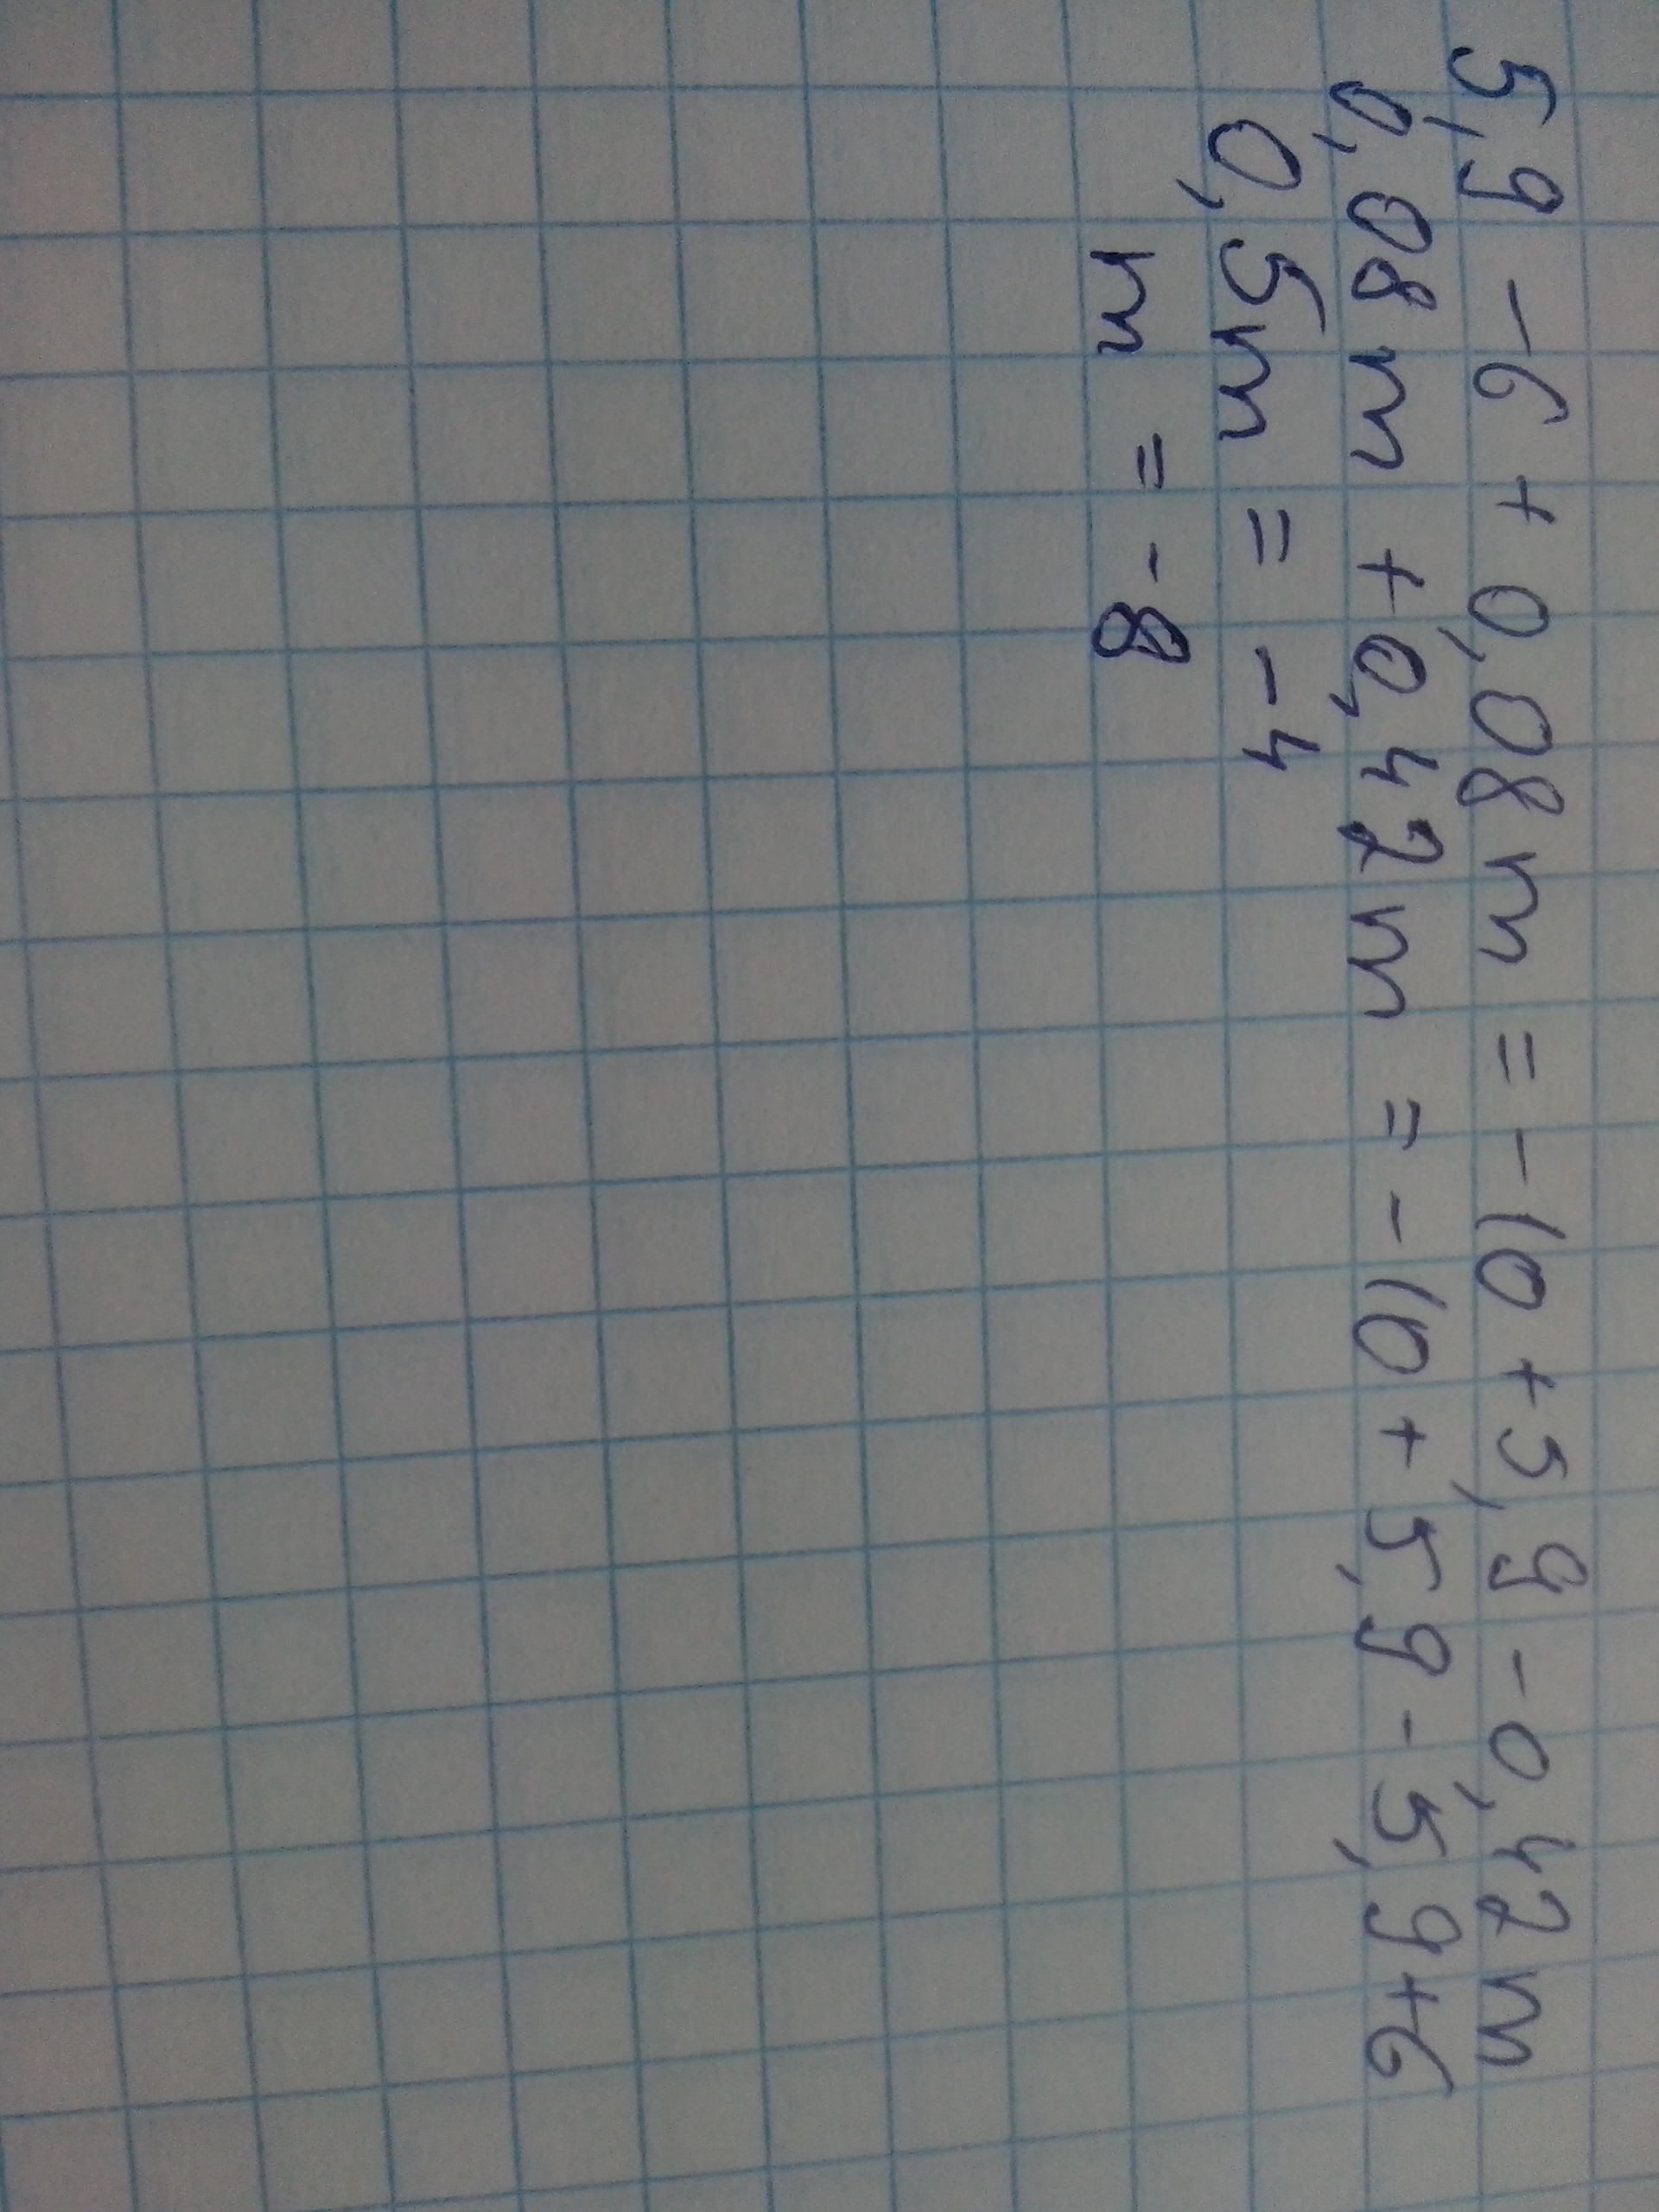 5,9 - 6 + 0,08m = -10 + 5,9 - 0,42m
0,08m + 0,42m = -10 + 5,9 - 5,9 + 6
0,5m = -4
m = -8